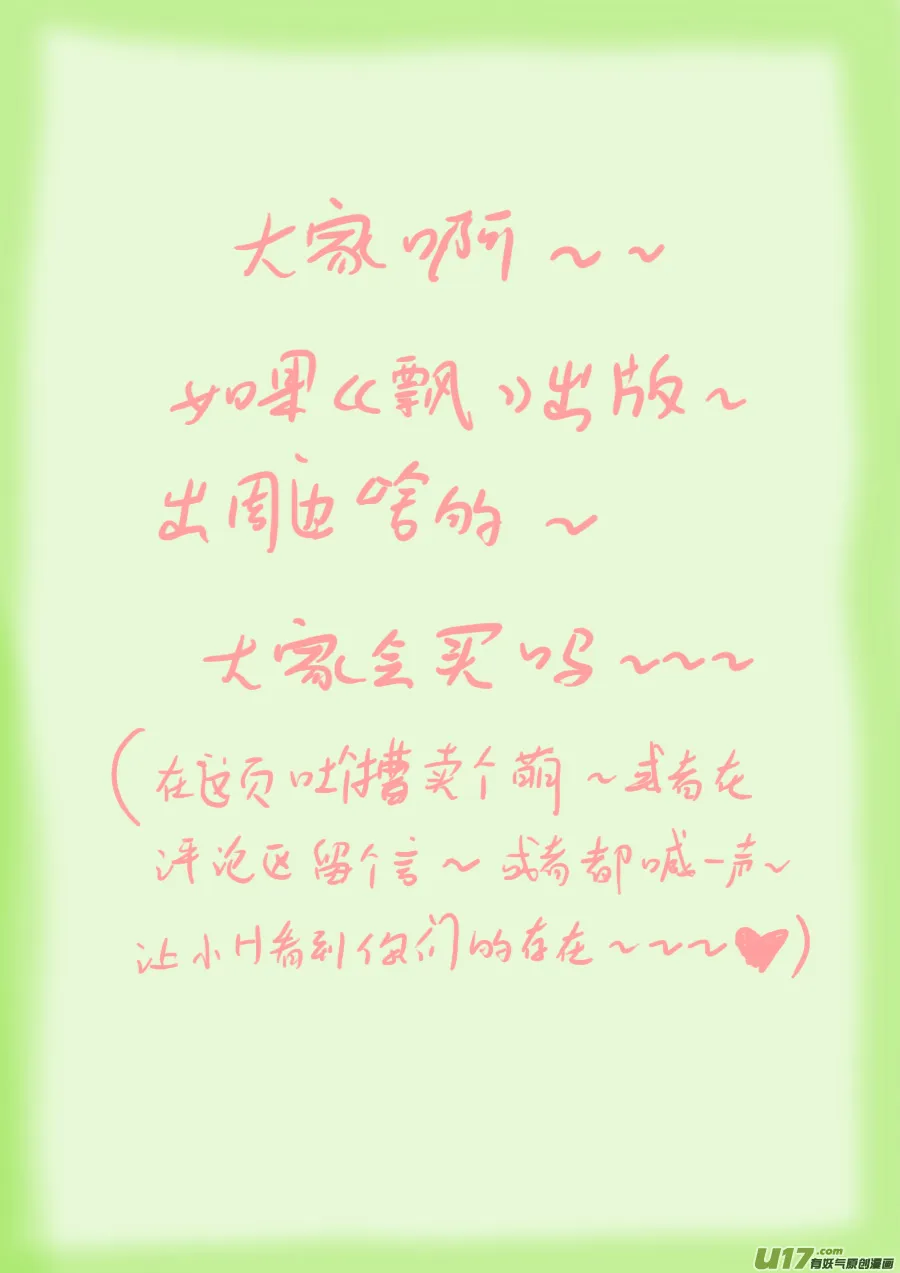 大家啊~~
如果《飘》出版~
出周边啥的~
大家会买吗~~~
(在这页吐个槽卖个萌~或者在
评论区留个言~或者都喊一声~
让小H看到你们的存在~~~♥)
U17.com
有妖气原创漫画